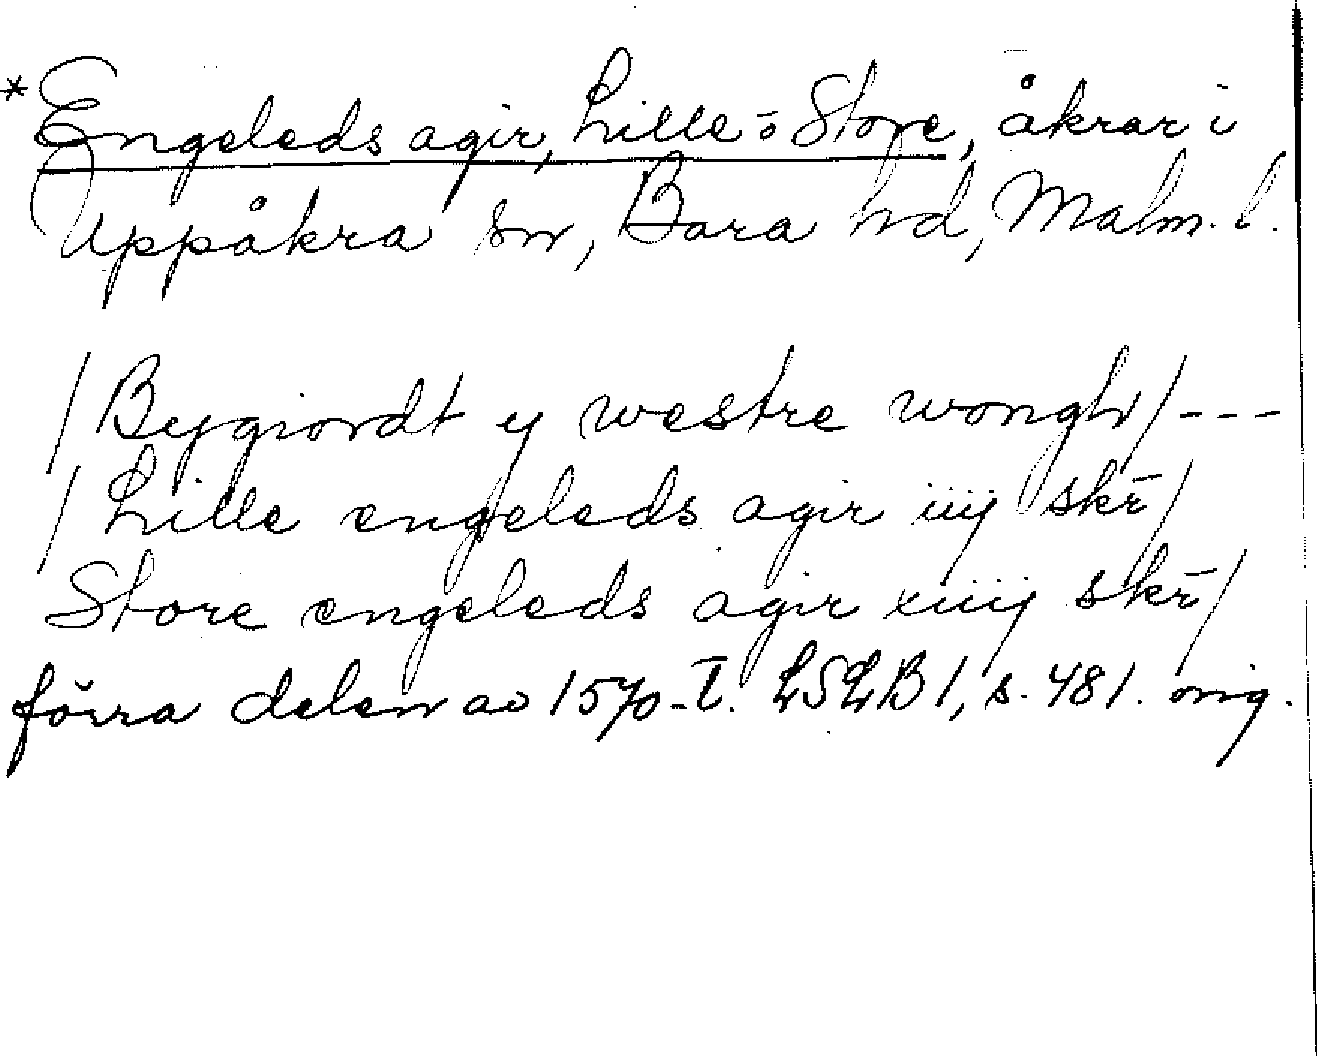 *Engeleds agir, Lille- o Store, åkrar i
Uppåkra sn, Bara hd, Malm. l.
/Bygiordt y westre wongh/ ---
/Lille engeleds agir iiij skr̄/
Store engeleds agir xiiij skr̄/
förra delen av 1570-t. LSLB 1, s. 481. orig.